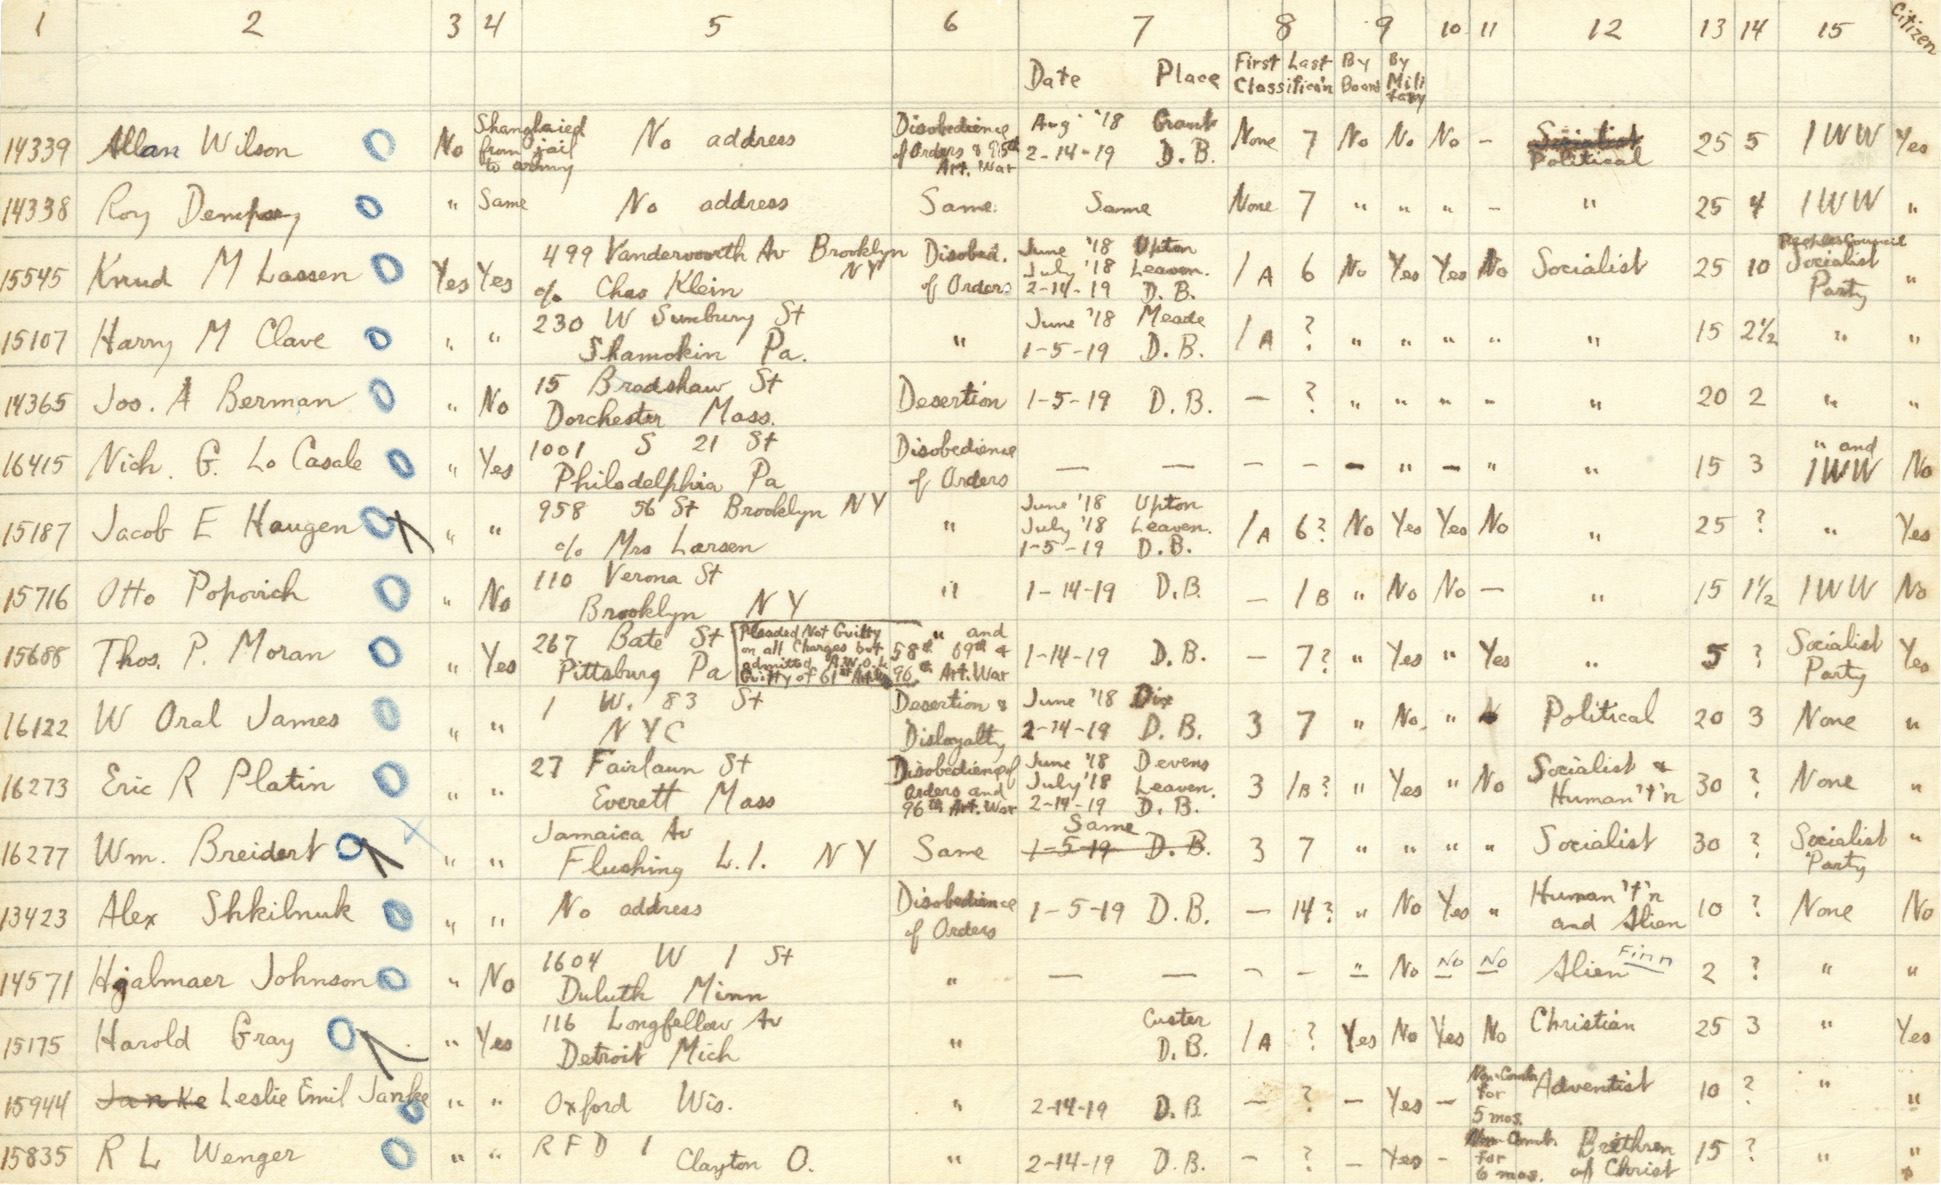 1 2 3 4 5 6 7 8 9 10 11 12 13 14 15 Citizen
Date Place First Last Classific'n By Board By Military
14339 Allan Wilson No Shanghaied from jail to army No address Disobedience of Orders & 95th Art. War Aug '18 Grant 2-14-19 D.B. None 7 No No No - Socialist Political 25 5 IWW Yes
14338 Roy Dempsey " Same No address Same Same None 7 " " " - " 25 4 IWW "
15545 Knud M Lassen Yes Yes 499 Vandervoorth Av Brooklyn NY c/o Chas Klein Disobed. of Orders June '18 Upton July '18 Leaven. 2-14-19 D.B. 1A 6 No Yes Yes No Socialist 25 10 Peoples Council Socialist Party "
15107 Harry M Clave " " 230 W Sunbury St Shamokin Pa. " June '18 Meade 1-5-19 D.B. 1A ? " " " " " 15 2½ " "
14365 Jos. A Berman " No 15 Bradshaw St Dorchester Mass. Desertion 1-5-19 D.B. - ? " " " " " 20 2 " "
16415 Nich. G. Lo Casale " Yes 1001 S 21 St Philadelphia Pa Disobedience of Orders - - - - - " - " " 15 3 " and IWW No
15187 Jacob E Haugen " " 958 56 St Brooklyn NY c/o Mrs Larsen " June '18 Upton July '18 Leaven. 1-5-19 D.B. 1A 6? No Yes Yes No " 25 ? " Yes
15716 Otto Popovich " No 110 Verona St Brooklyn NY " 1-14-19 D.B. - 1B " No No - " 15 1½ IWW No
15688 Thos. P. Moran " Yes 267 Bate St Pittsburg Pa Pleaded Not Guilty on all Charges but admitted A.W.O.L. Guilty of 61st " and 58th 69th & 96th Art. War 1-14-19 D.B. - 7? " Yes " Yes " 5 ? Socialist Party Yes
16122 W Oral James " " 1 W. 83 St NYC Desertion & Disloyalty June '18 Dix 2-14-19 D.B. 3 7 " No. " Political 20 3 None "
16273 Eric R Platin " " 27 Fairlaun St Everett Mass Disobedience of Orders and 96th Art. War June '18 Devens July '18 Leaven. 2-14-19 D.B. 3 1B? " Yes " No Socialist & Human't'n 30 ? None "
16277 Wm. Breidert " " Jamaica Av Flushing L.I. NY Same Same 1-5-19 D.B. 3 7 " " " " Socialist 30 ? Socialist Party "
13423 Alex Shkilnuk " " No address Disobedience of Orders 1-5-19 D.B. - 14? " No Yes " Human't'n and Alien 10 ? None No
14571 Hjalmaer Johnson " No 1604 W 1 St Duluth Minn " - - - - " No No No Alien Finn 2 ? " "
15175 Harold Gray " Yes 116 Longfellow Av Detroit Mich " Custer D.B. 1A ? Yes No Yes No Christian 25 3 " Yes
15944 Janke Leslie Emil Janke " " Oxford Wis. " 2-14-19 D.B. - ? - Yes - Non-Comb. for 5 mos. Adventist 10 ? " "
15835 R L Wenger " " RFD 1 Clayton O. " 2-14-19 D.B. - ? - Yes - Non-Comb. for 6 mos. Brethren of Christ 15 ? " "